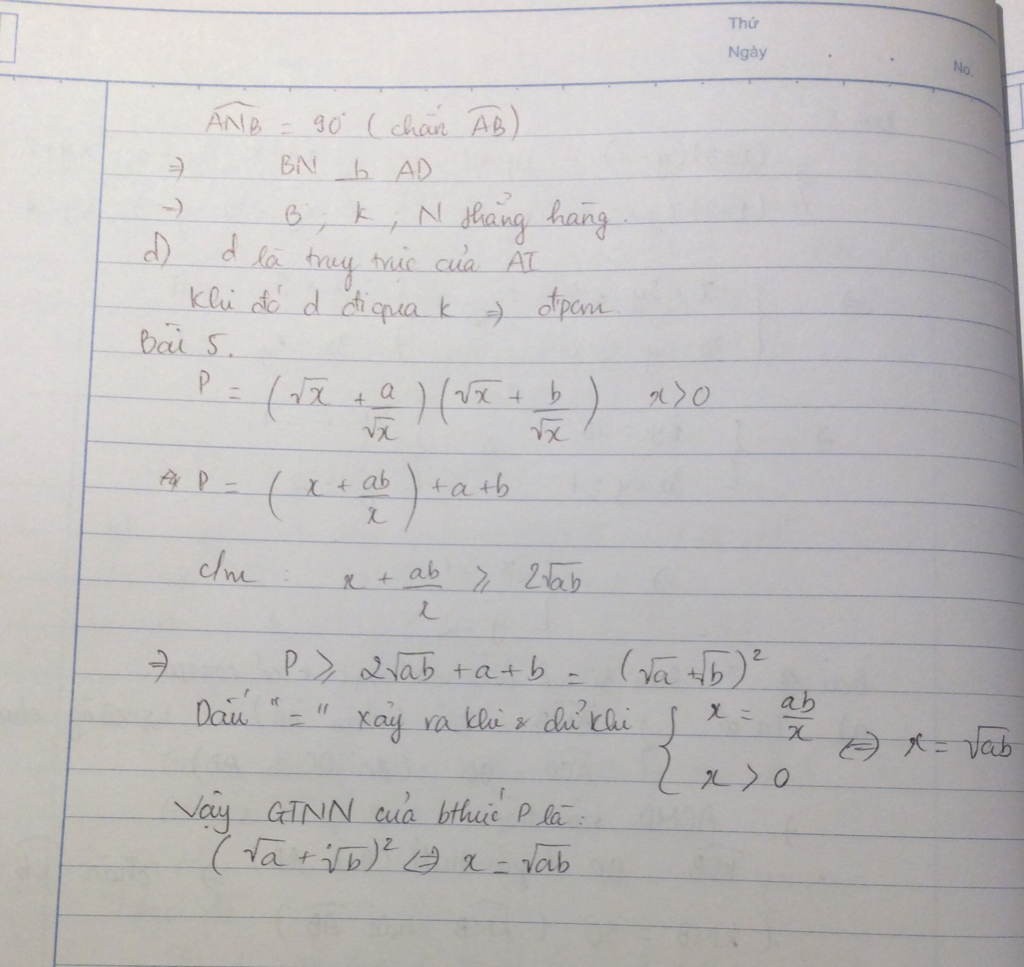 Thứ
Ngày
No.
ANB = 90° (chắn AB)
⇒ BN ⊥ AD
→ B, K, N thẳng hàng.
d) d là truy trức của AI
Khi đó d đi qua K ⇒ đpcm.
Bài 5.
P = (√x + a/√x)(√x + b/√x) x>0
P = (x + ab/x) + a+b
c/m : x + ab/x ⩾ 2√ab
⇒ P ⩾ 2√ab + a + b = (√a + √b)²
Dấu "=" xảy ra khi & chỉ khi { x = ab/x ; x > 0 ⇔ x = √ab
Vậy GTNN của bthức P là:
(√a + √b)² ⇔ x = √ab